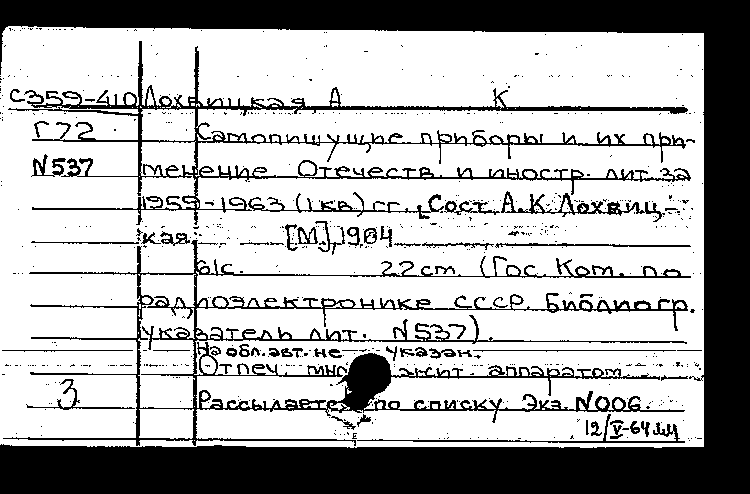 С359-410 Лохвицкая, А К
Г72 Самопишущие приборы и их при-
N537 менение. Отечеств. и иностр. лит. за
1959-1963 (I кв) гг. Сост. А.К. Лохвиц-
кая. [М], 1964
61с. 22 cm. (Гос. Ком. по
радиоэлектронике СССР. Библиогр.
указатель лит. N537).
На обл. авт. не указан.
Отпеч. аппаратом
3 Рассылается по списку. Экз. N006.
12/V-64